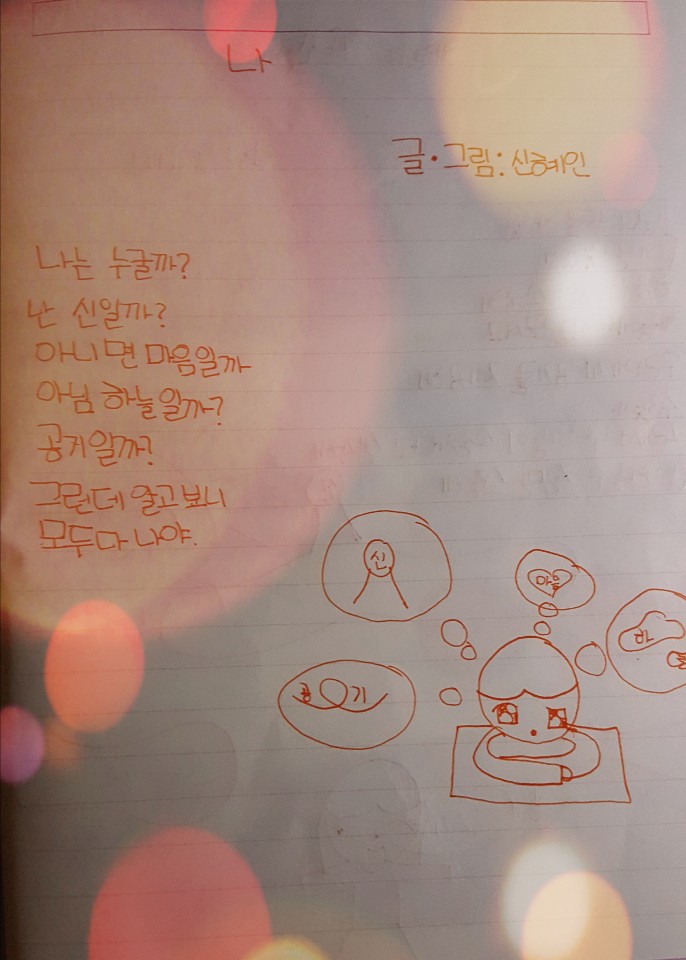 나
글·그림:신혜인
나는 누굴까?
난 신일까?
아니면 마음일까
아님 하늘일까?
공기일까?
그런데 알고보니
모두다 나야.
신
마음
하늘
공기